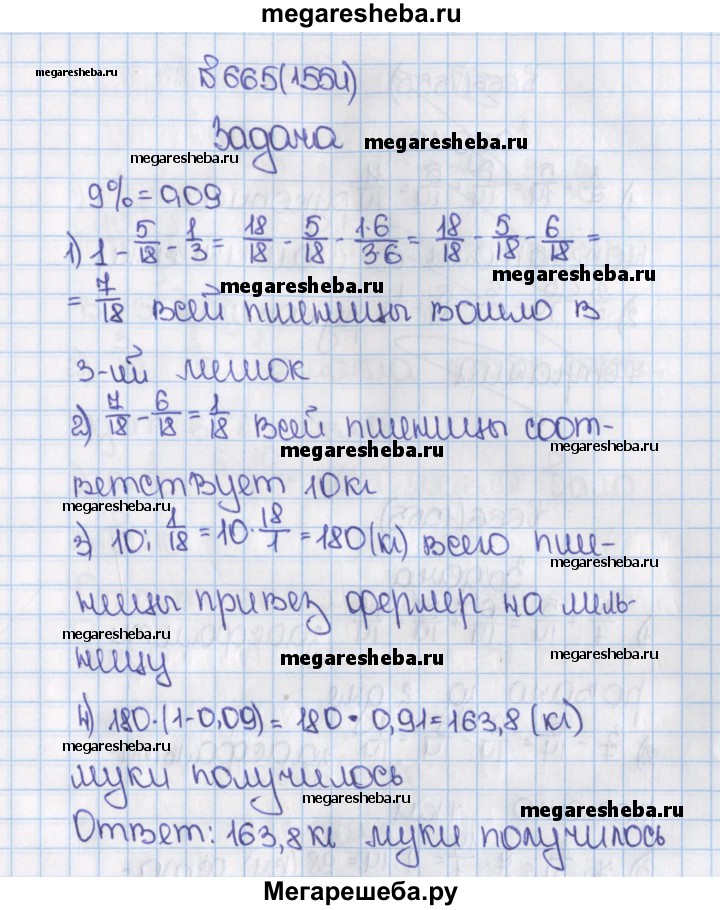 megaresheba.ru
№665(1554)
megaresheba.ru
Задача
megaresheba.ru
megaresheba.ru
9% = 0,09
1) 1 - 5/18 - 1/3 = 18/18 - 5/18 - 1·6/3·6 = 18/18 - 5/18 - 6/18 =
megaresheba.ru
megaresheba.ru
= 7/18 всей пшеницы вошло в
3-ий мешок
2) 7/18 - 6/18 = 1/18 всей пшеницы соот-
megaresheba.ru
megaresheba.ru
ветствует 10кг
megaresheba.ru
3) 10 : 1/18 = 10 · 18/1 = 180(кг) всего пше-
ницы привез фермер на мель-
megaresheba.ru
ницу
megaresheba.ru
4) 180·(1-0,09) = 180 · 0,91 = 163,8 (кг)
megaresheba.ru
муки получилось
megaresheba.ru
megaresheba.ru
Ответ: 163,8кг муки получилось
Мегарешеба.ру